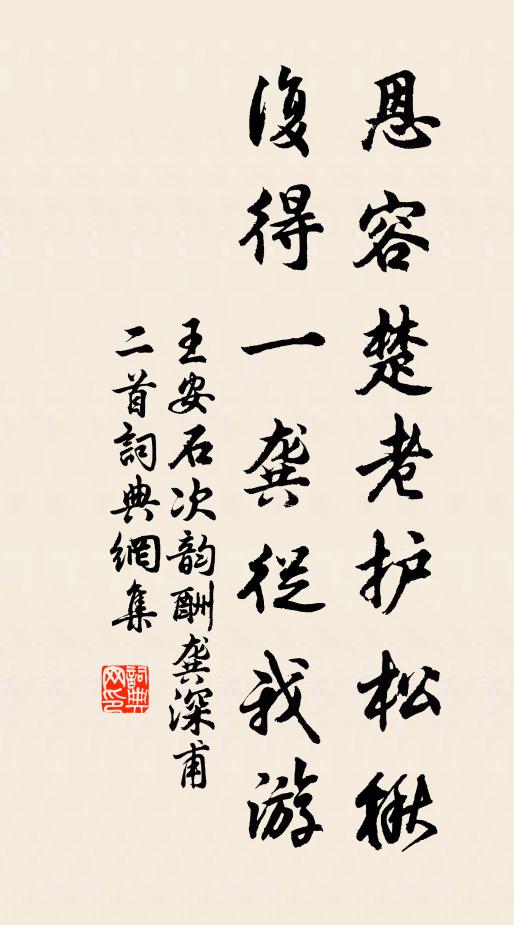 恩容楚老护松楸
復得一龚從我游
王安石次韵酬龚深甫
二首詞典網集
詞典
网印